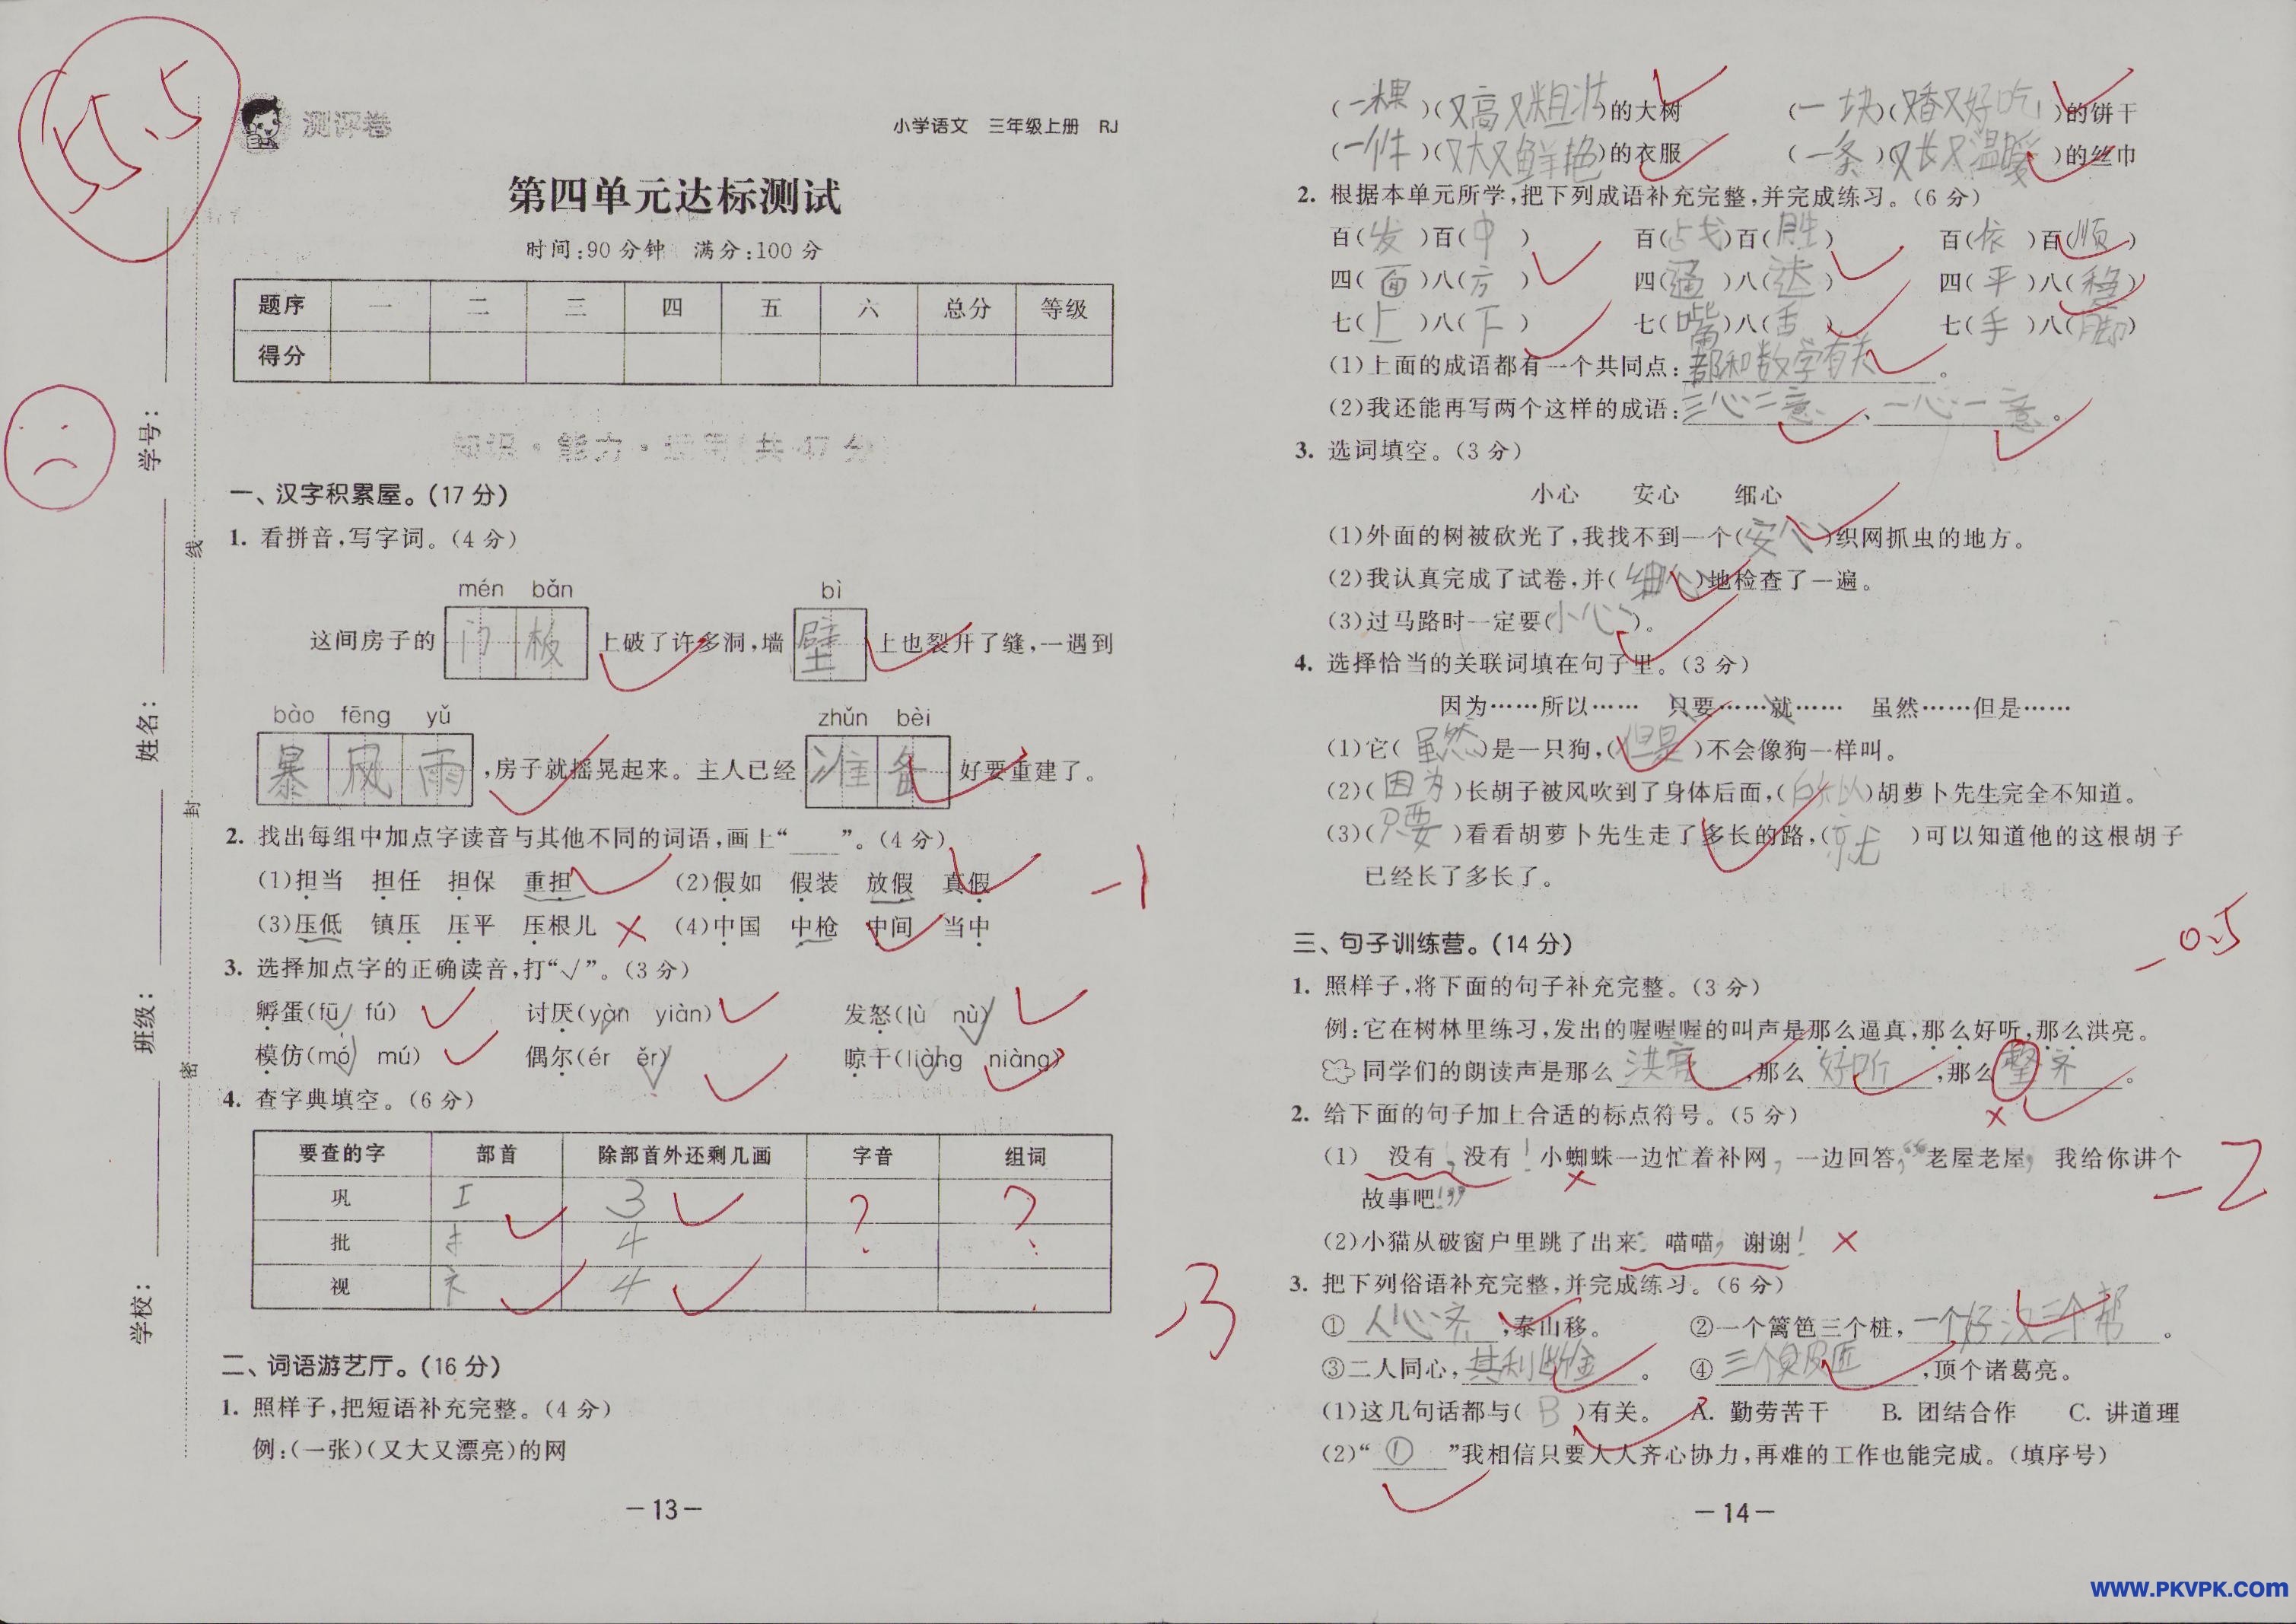 55.5
测评卷
小学语文 三年级上册 RJ
第四单元达标测试
时间:90分钟 满分:100分
题序 一 二 三 四 五 六 总分 等级
得分
知识·能力·运用(共47分)
学校: 班级: 姓名: 学号:
密 封 线
一、汉字积累屋。(17分)
1. 看拼音,写字词。(4分)
mén bǎn bì
这间房子的门板上破了许多洞,墙壁上也裂开了缝,一遇到
bào fēng yǔ zhǔn bèi
暴风雨,房子就摇晃起来。主人已经准备好要重建了。
2. 找出每组中加点字读音与其他不同的词语,画上“____”。(4分)
(1)担当 担任 担保 重担 (2)假如 假装 放假 真假
-1
(3)压低 镇压 压平 压根儿 (4)中国 中枪 中间 当中
3. 选择加点字的正确读音,打“√”。(3分)
孵蛋(fū√ fú) 讨厌(yàn√ yiàn) 发怒(lù nù√)
模仿(mó√ mú) 偶尔(ér ěr√) 晾干(liàng√ niàng)
4. 查字典填空。(6分)
要查的字 部首 除部首外还剩几画 字音 组词
巩 工 3 ? ?
批 扌 4
视 礻 4
-3
二、词语游艺厅。(16分)
1. 照样子,把短语补充完整。(4分)
例:(一张)(又大又漂亮)的网
—13—
(一棵)(又高又粗壮)的大树 (一块)(又香又好吃)的饼干
(一件)(又大又鲜艳)的衣服 (一条)(又长又温暖)的丝巾
2. 根据本单元所学,把下列成语补充完整,并完成练习。(6分)
百(发)百(中) 百(战)百(胜) 百(依)百(顺)
四(面)八(方) 四(通)八(达) 四(平)八(稳)
七(上)八(下) 七(嘴)八(舌) 七(手)八(脚)
(1)上面的成语都有一个共同点:都和数学有关。
(2)我还能再写两个这样的成语:三心二意、一心一意。
3. 选词填空。(3分)
小心 安心 细心
(1)外面的树被砍光了,我找不到一个(安心)织网抓虫的地方。
(2)我认真完成了试卷,并(细心)地检查了一遍。
(3)过马路时一定要(小心)。
4. 选择恰当的关联词填在句子里。(3分)
因为……所以…… 只要……就…… 虽然……但是……
(1)它(虽然)是一只狗,(但是)不会像狗一样叫。
(2)(因为)长胡子被风吹到了身体后面,(所以)胡萝卜先生完全不知道。
(3)(只要)看看胡萝卜先生走了多长的路,(就)可以知道他的这根胡子
已经长了多长了。
三、句子训练营。(14分)
-0.5
1. 照样子,将下面的句子补充完整。(3分)
例:它在树林里练习,发出的喔喔喔的叫声是那么逼真,那么好听,那么洪亮。
同学们的朗读声是那么洪亮,那么好听,那么整齐。
2. 给下面的句子加上合适的标点符号。(5分)
(1) 没有,没有!小蜘蛛一边忙着补网,一边回答,“老屋老屋,我给你讲个
故事吧!”
-2
(2)小猫从破窗户里跳了出来: 喵喵,谢谢!
3. 把下列俗语补充完整,并完成练习。(6分)
①人心齐,泰山移。 ②一个篱笆三个桩,一个好汉三个帮。
③二人同心,其利断金。 ④三个臭皮匠,顶个诸葛亮。
(1)这几句话都与(B)有关。 A. 勤劳苦干 B. 团结合作 C. 讲道理
(2)“①”我相信只要人人齐心协力,再难的工作也能完成。(填序号)
—14—
www.PKVPK.com